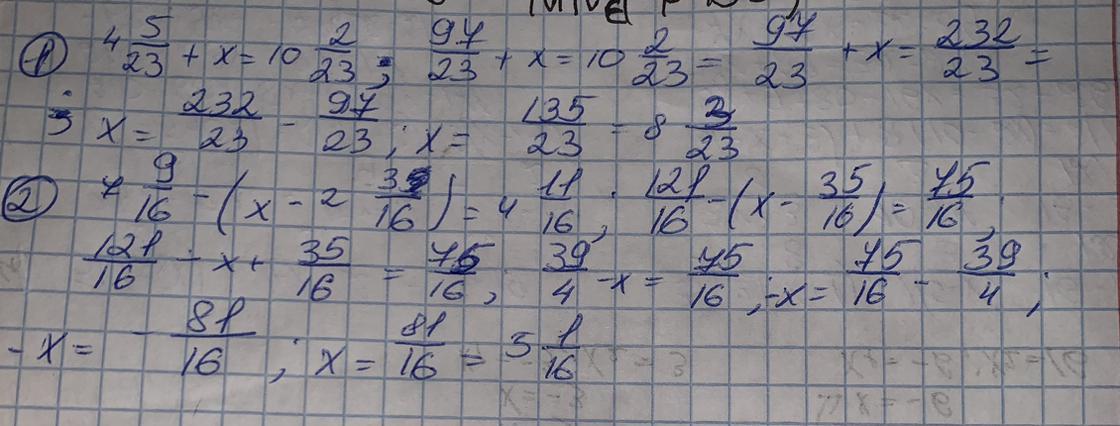 ① 4 5/23 + x = 10 2/23 ; 97/23 + x = 10 2/23 = 97/23 + x = 232/23 =
; x = 232/23 - 97/23 ; x = 135/23 = 8 3/23
② 7 9/16 - ( x - 2 3/16 ) = 4 11/16 ; 121/16 - ( x - 35/16 ) = 75/16 ;
121/16 - x + 35/16 = 75/16 ; 39/4 - x = 75/16 ; -x = 75/16 - 39/4 ;
- x = - 81/16 ; x = 81/16 = 5 1/16